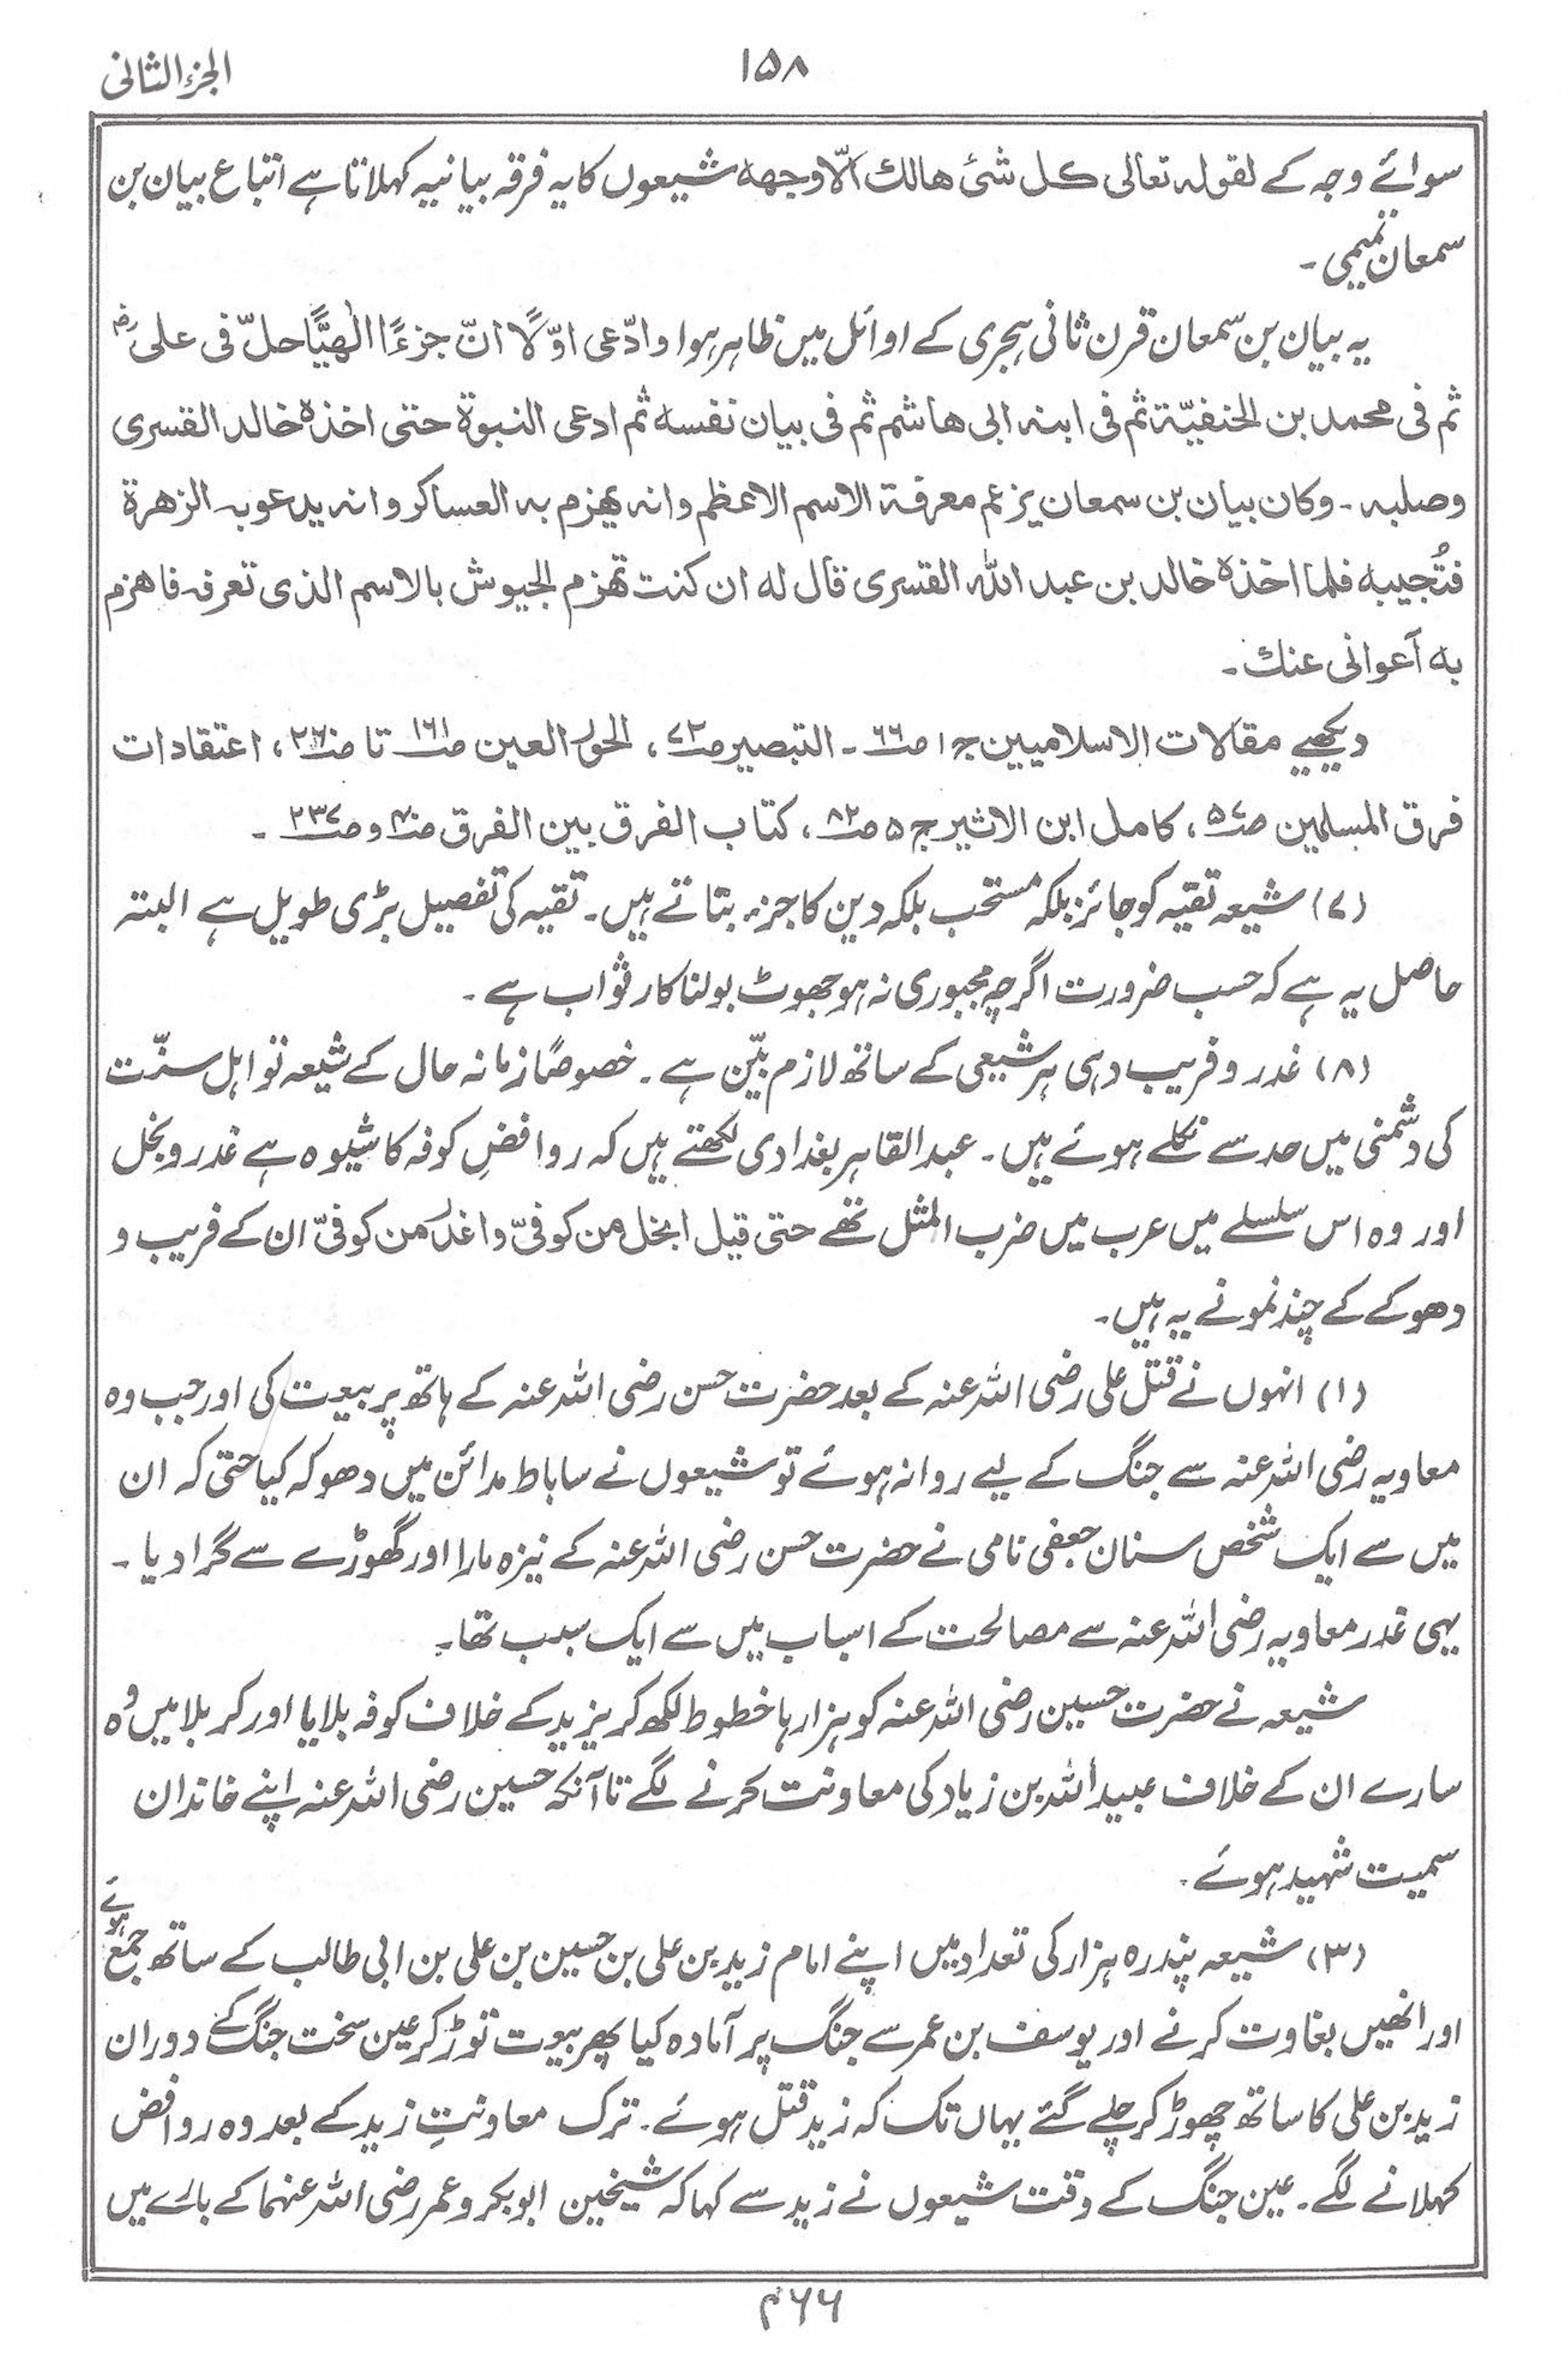 الجزء الثانی
۱۵۸
سوائے وجہ کے لقولہ تعالی کل شئ ھالك الّا وجھہ شیعوں کا یہ فرقہ بیانیہ کہلاتا ہے اتباع بیان بن
سمعان تمیمی ۔
یہ بیان بن سمعان قرن ثانی ہجری کے اوائل میں ظاہر ہوا وادّعی اوّلًا انّ جزءًا الٰھیًّا حلّ فی علیؓ
ثم فی محمد بن الحنفیّۃ ثم فی ابنہ ابی ھاشم ثم فی بیان نفسہ ثم ادعی النبوۃ حتی اخذہ خالد القسری
وصلبہ ۔ وکان بیان بن سمعان یزعم معرفۃ الاسم الاعظم وانہ یھزم بہ العساکر وانہ یدعو بہ الزھرۃ
فتُجیبہ فلما اخذہ خالد بن عبد اللہ القسری قال لہ ان کنت تھزم الجیوش بالاسم الذی تعرفہ فاھزم
بہ آعوانی عنك ۔
دیکھیے مقالات الاسلامیین ج ۱ ص ۶۶ ۔ التبصیر ص ۷۲ ، الحور العین ص ۱۶۱ تا ص ۲۶۰ ، اعتقادات
فرق المسلمین ص ۵۷ ، کامل ابن الاثیر ج ۵ ص ۸۲ ، کتاب الفرق بین الفرق ص ۴۰ و ص ۲۳۷ ۔
(۷) شیعہ تقیہ کو جائز بلکہ مستحب بلکہ دین کا جزء بتاتے ہیں ۔ تقیہ کی تفصیل بڑی طویل ہے البتہ
حاصل یہ ہے کہ حسب ضرورت اگرچہ مجبوری نہ ہو جھوٹ بولنا کار ثواب ہے ۔
(۸) غدر و فریب دہی ہر شیعی کے ساتھ لازم بیّن ہے ۔ خصوصًا زمانہ حال کے شیعہ تو اہل سنّت
کی دشمنی میں حد سے نکلے ہوئے ہیں ۔ عبد القاہر بغدادی لکھتے ہیں کہ روافضِ کوفہ کا شیوہ ہے غدر و بخل
اور وہ اس سلسلے میں عرب میں ضرب المثل تھے حتی قیل ابخل من کوفیّ واغدر من کوفیّ ان کے فریب و
دھوکے کے چند نمونے یہ ہیں ۔
(۱) انہوں نے قتل علی رضی اللہ عنہ کے بعد حضرت حسن رضی اللہ عنہ کے ہاتھ پر بیعت کی اور جب وہ
معاویہ رضی اللہ عنہ سے جنگ کے لیے روانہ ہوئے تو شیعوں نے ساباط مدائن میں دھوکہ کیا حتی کہ ان
میں سے ایک شخص سنان جعفی نامی نے حضرت حسن رضی اللہ عنہ کے نیزہ مارا اور گھوڑے سے گرا دیا ۔
یہی غدر معاویہ رضی اللہ عنہ سے مصالحت کے اسباب میں سے ایک سبب تھا ۔
شیعہ نے حضرت حسین رضی اللہ عنہ کو ہزارہا خطوط لکھ کر یزید کے خلاف کوفہ بلایا اور کربلا میں وُہ
سارے ان کے خلاف عبید اللہ بن زیاد کی معاونت کرنے لگے تا آنکہ حسین رضی اللہ عنہ اپنے خاندان
سمیت شہید ہوئے ۔
(۳) شیعہ پندرہ ہزار کی تعداد میں اپنے امام زید بن علی بن حسین بن علی بن ابی طالب کے ساتھ جمع ہوئے
اور انھیں بغاوت کرنے اور یوسف بن عمر سے جنگ پر آمادہ کیا پھر بیعت توڑ کر عین سخت جنگ کے دوران
زید بن علی کا ساتھ چھوڑ کر چلے گئے یہاں تک کہ زید قتل ہوئے ۔ ترک معاونتِ زید کے بعد وہ روافض
کہلانے لگے ۔ عین جنگ کے وقت شیعوں نے زید سے کہا کہ شیخین ابوبکر و عمر رضی اللہ عنہما کے بارے میں
۴۶۶